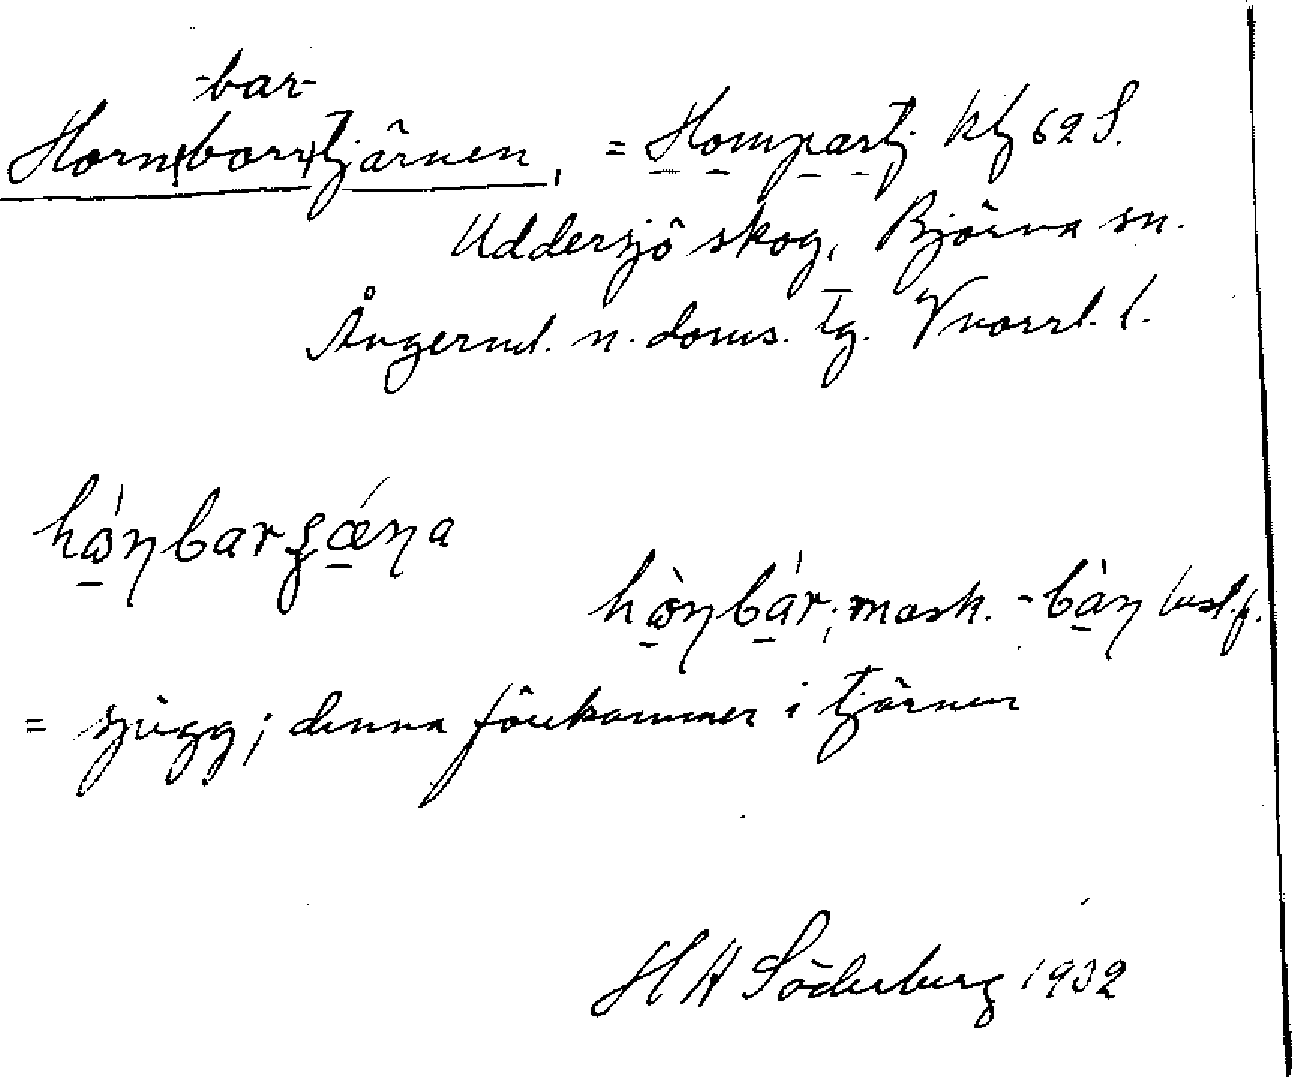 -bar-
Horn(borr)tjärnen, = Hompartj kbl 62 S.
Uddersjö skog, Björna sn.
Ångerml. n. doms. tg. Vnorrl. l.
hɷ́ŋbar ʂǽŋa
hɷ̀ŋbár; mask. -bàŋ best. f.
= spigg; denna förekommer i tjärnen
H A Söderberg 1932